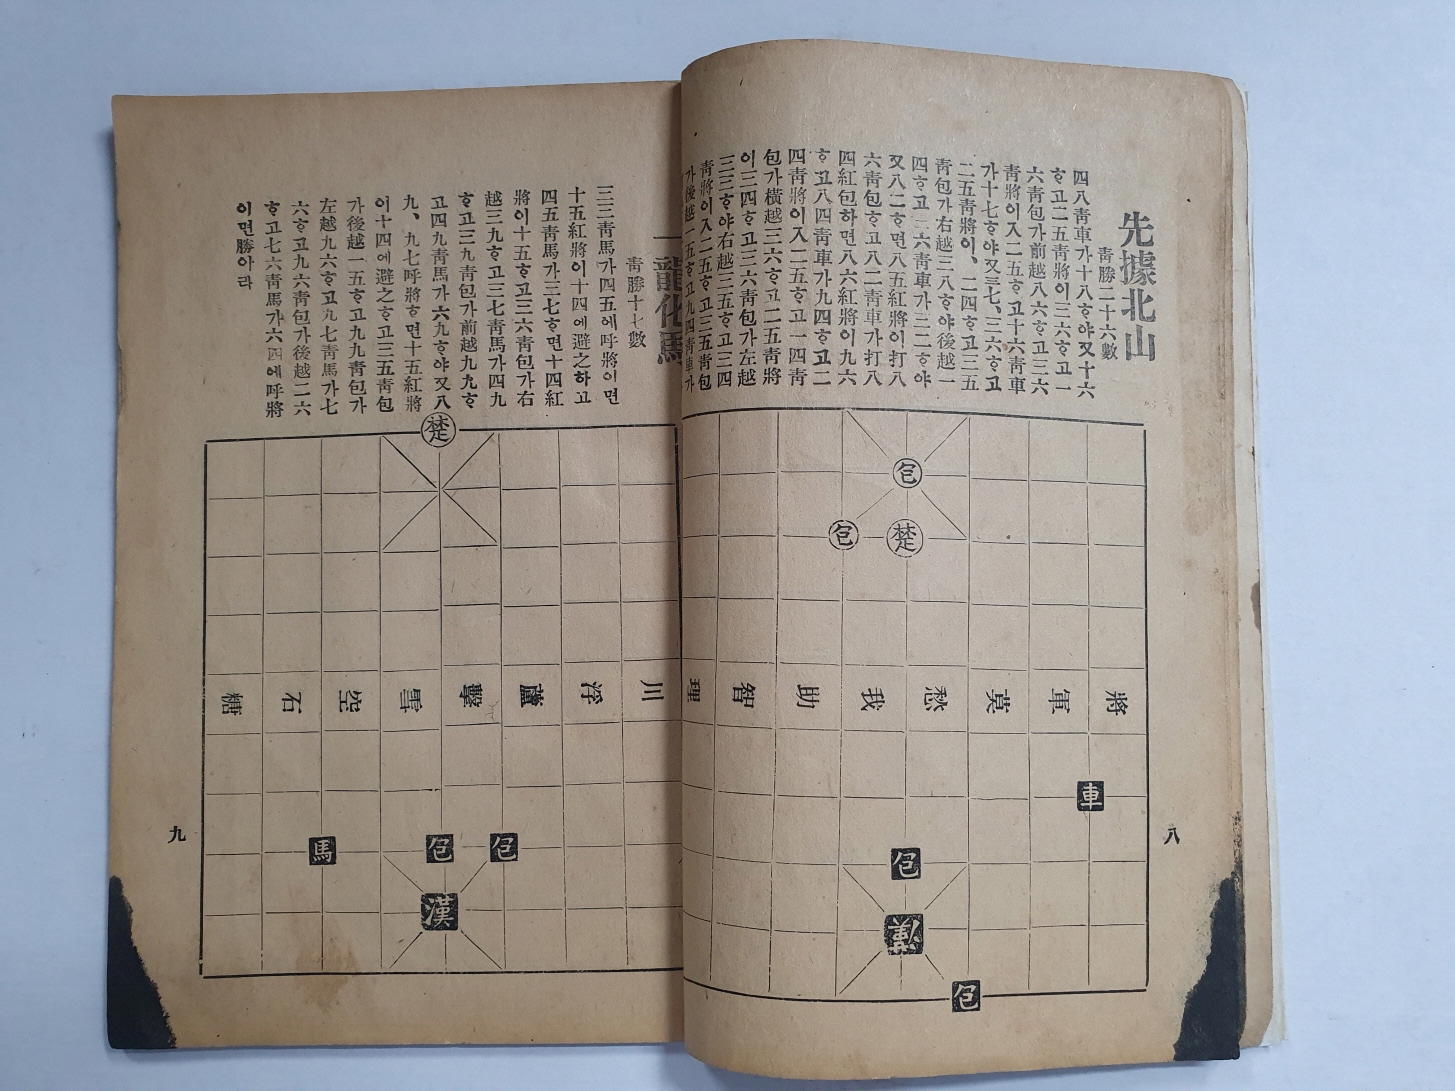 先據北山
靑勝二十六數
四八靑車가十八ᄒᆞ야又十六
ᄒᆞ고二五靑將이三六ᄒᆞ고一
六靑包가前越八六ᄒᆞ고三六
靑將이入二五ᄒᆞ고十六靑車
가十七ᄒᆞ야又三七、三六ᄒᆞ고
二五靑將이、二四ᄒᆞ고三五
靑包가右越三八ᄒᆞ야後越一
四ᄒᆞ고二六靑車가三二ᄒᆞ야
又八二ᄒᆞ면八五紅將이打八
六靑包ᄒᆞ고八二靑車가打八
四紅包하면八六紅將이九六
ᄒᆞ고八四靑車가九四ᄒᆞ고二
四靑將이入二五ᄒᆞ고一四靑
包가橫越三六ᄒᆞ고二五靑將
이三四ᄒᆞ고三六靑包가左越
三三ᄒᆞ야右越三五ᄒᆞ고三四
靑將이入二五ᄒᆞ고三五靑包
가後越一五ᄒᆞ고九四靑車가
包
包
楚
將軍莫愁我助智理
車
包
漢
包
八
一龍化馬
靑勝十七數
三三靑馬가四五에呼將이면
十五紅將이十四에避之하고
四五靑馬가三七ᄒᆞ면十四紅
將이十五ᄒᆞ고三六靑包가右
越三九ᄒᆞ고三七靑馬가四九
ᄒᆞ고三九靑包가前越九九ᄒᆞ
고四九靑馬가六九ᄒᆞ야又八
九、九七呼將ᄒᆞ면十五紅將
이十四에避之ᄒᆞ고三五靑包
가後越一五ᄒᆞ고九九靑包가
左越九六ᄒᆞ고九七靑馬가七
六ᄒᆞ고九六靑包가後越二六
ᄒᆞ고七六靑馬가六四에呼將
이면勝아라
楚
川浮蘆擊雪空石糖
馬
包
包
漢
九